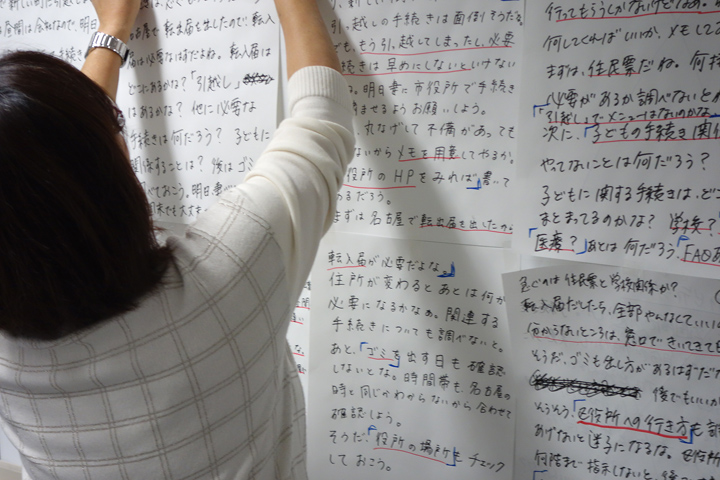 昼間は
古屋で転出届を出したので、転入
届は必要なはずだよね。転入届は
どこにあるかな?「引越し」
はあるかな? 他に必要な
手続きは何だろう? 子どもに
関係することは? 後はゴミ
ておこう。明日妻が
引っ越しの手続きは面倒そうだな。
でも、もう引っ越してしまったし、必要
続きは早めにしないといけない
な。明日妻に市役所で手続き
済ませるようお願いしよう。
、丸なげして不備があっても
ないからメモを用意してやるか。
役所のHPをみれば書いて
あるだろう。
まずは名古屋で転出届を出したの。
転入届が必要だよな。
住所が変わるとあとは何が
必要になるかなぁ。関連する
手続きについても調べないと。
あと、「ゴミを出す日も確認
しないとな。時間帯も、名古屋の
時と同じかわからないから合わせて
確認しよう。
そうだ。「役所の場所」もチェック
しておこう。
行ってもうしか
何してくればいいか、メモして
まずは、住民票だね。何
必要があるか調べないと
「引越し」でメニューはないのかな
次に、「子どもの手続き関係
やってないことは何だろう?
子どもに関する手続きは、ど
まとまってるのかな? 学校?
「医療?」あとは何だろう、「FAQ
急ぐのは住民票と学校関係か?
転入届だしたら、全部やんなくていい
分からないところは、窓口できいてきて
そうだ、ゴミも出し方があるはずだ
後でもいいか
そうそう「区役所への行き方も
あげないと迷子になるな。区役所
何階まで指示しないと、後